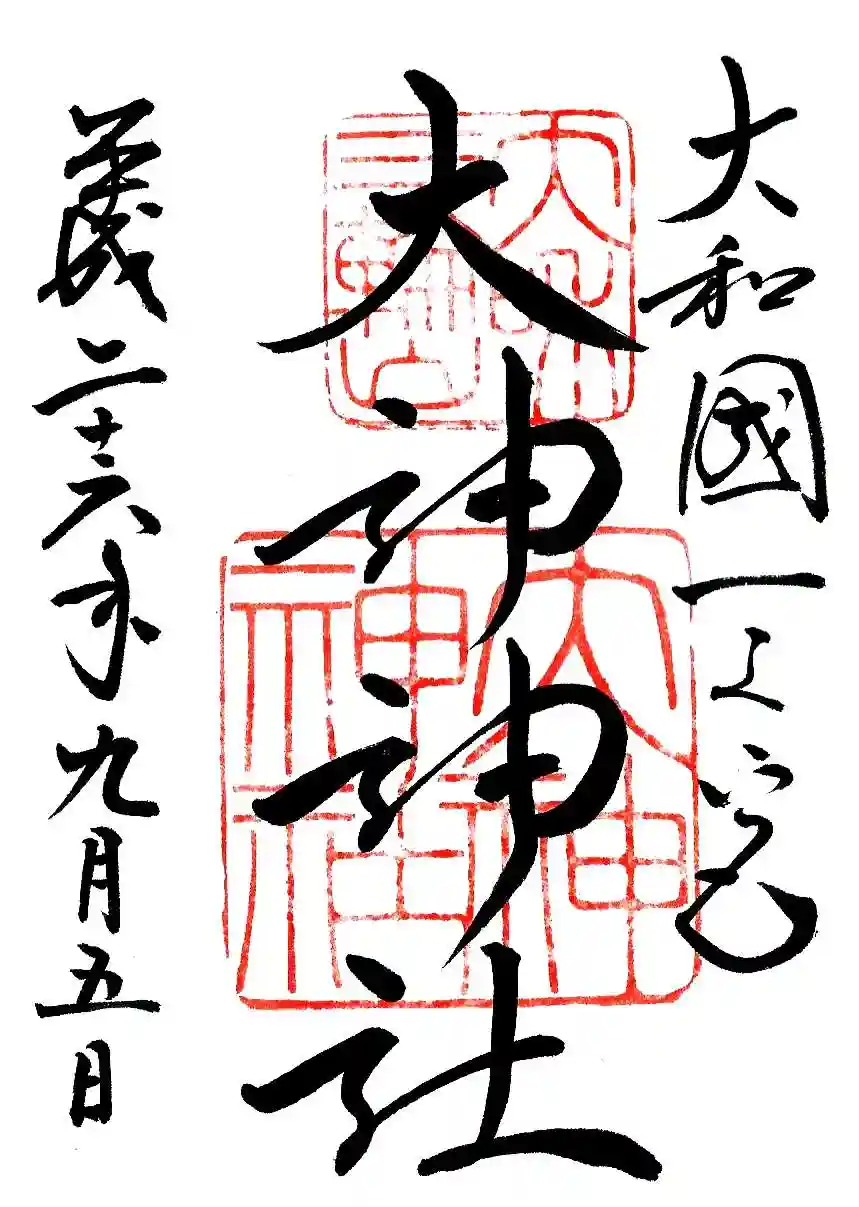 大和國一之宮
大神神社
平成二十六年九月五日
大神
神社